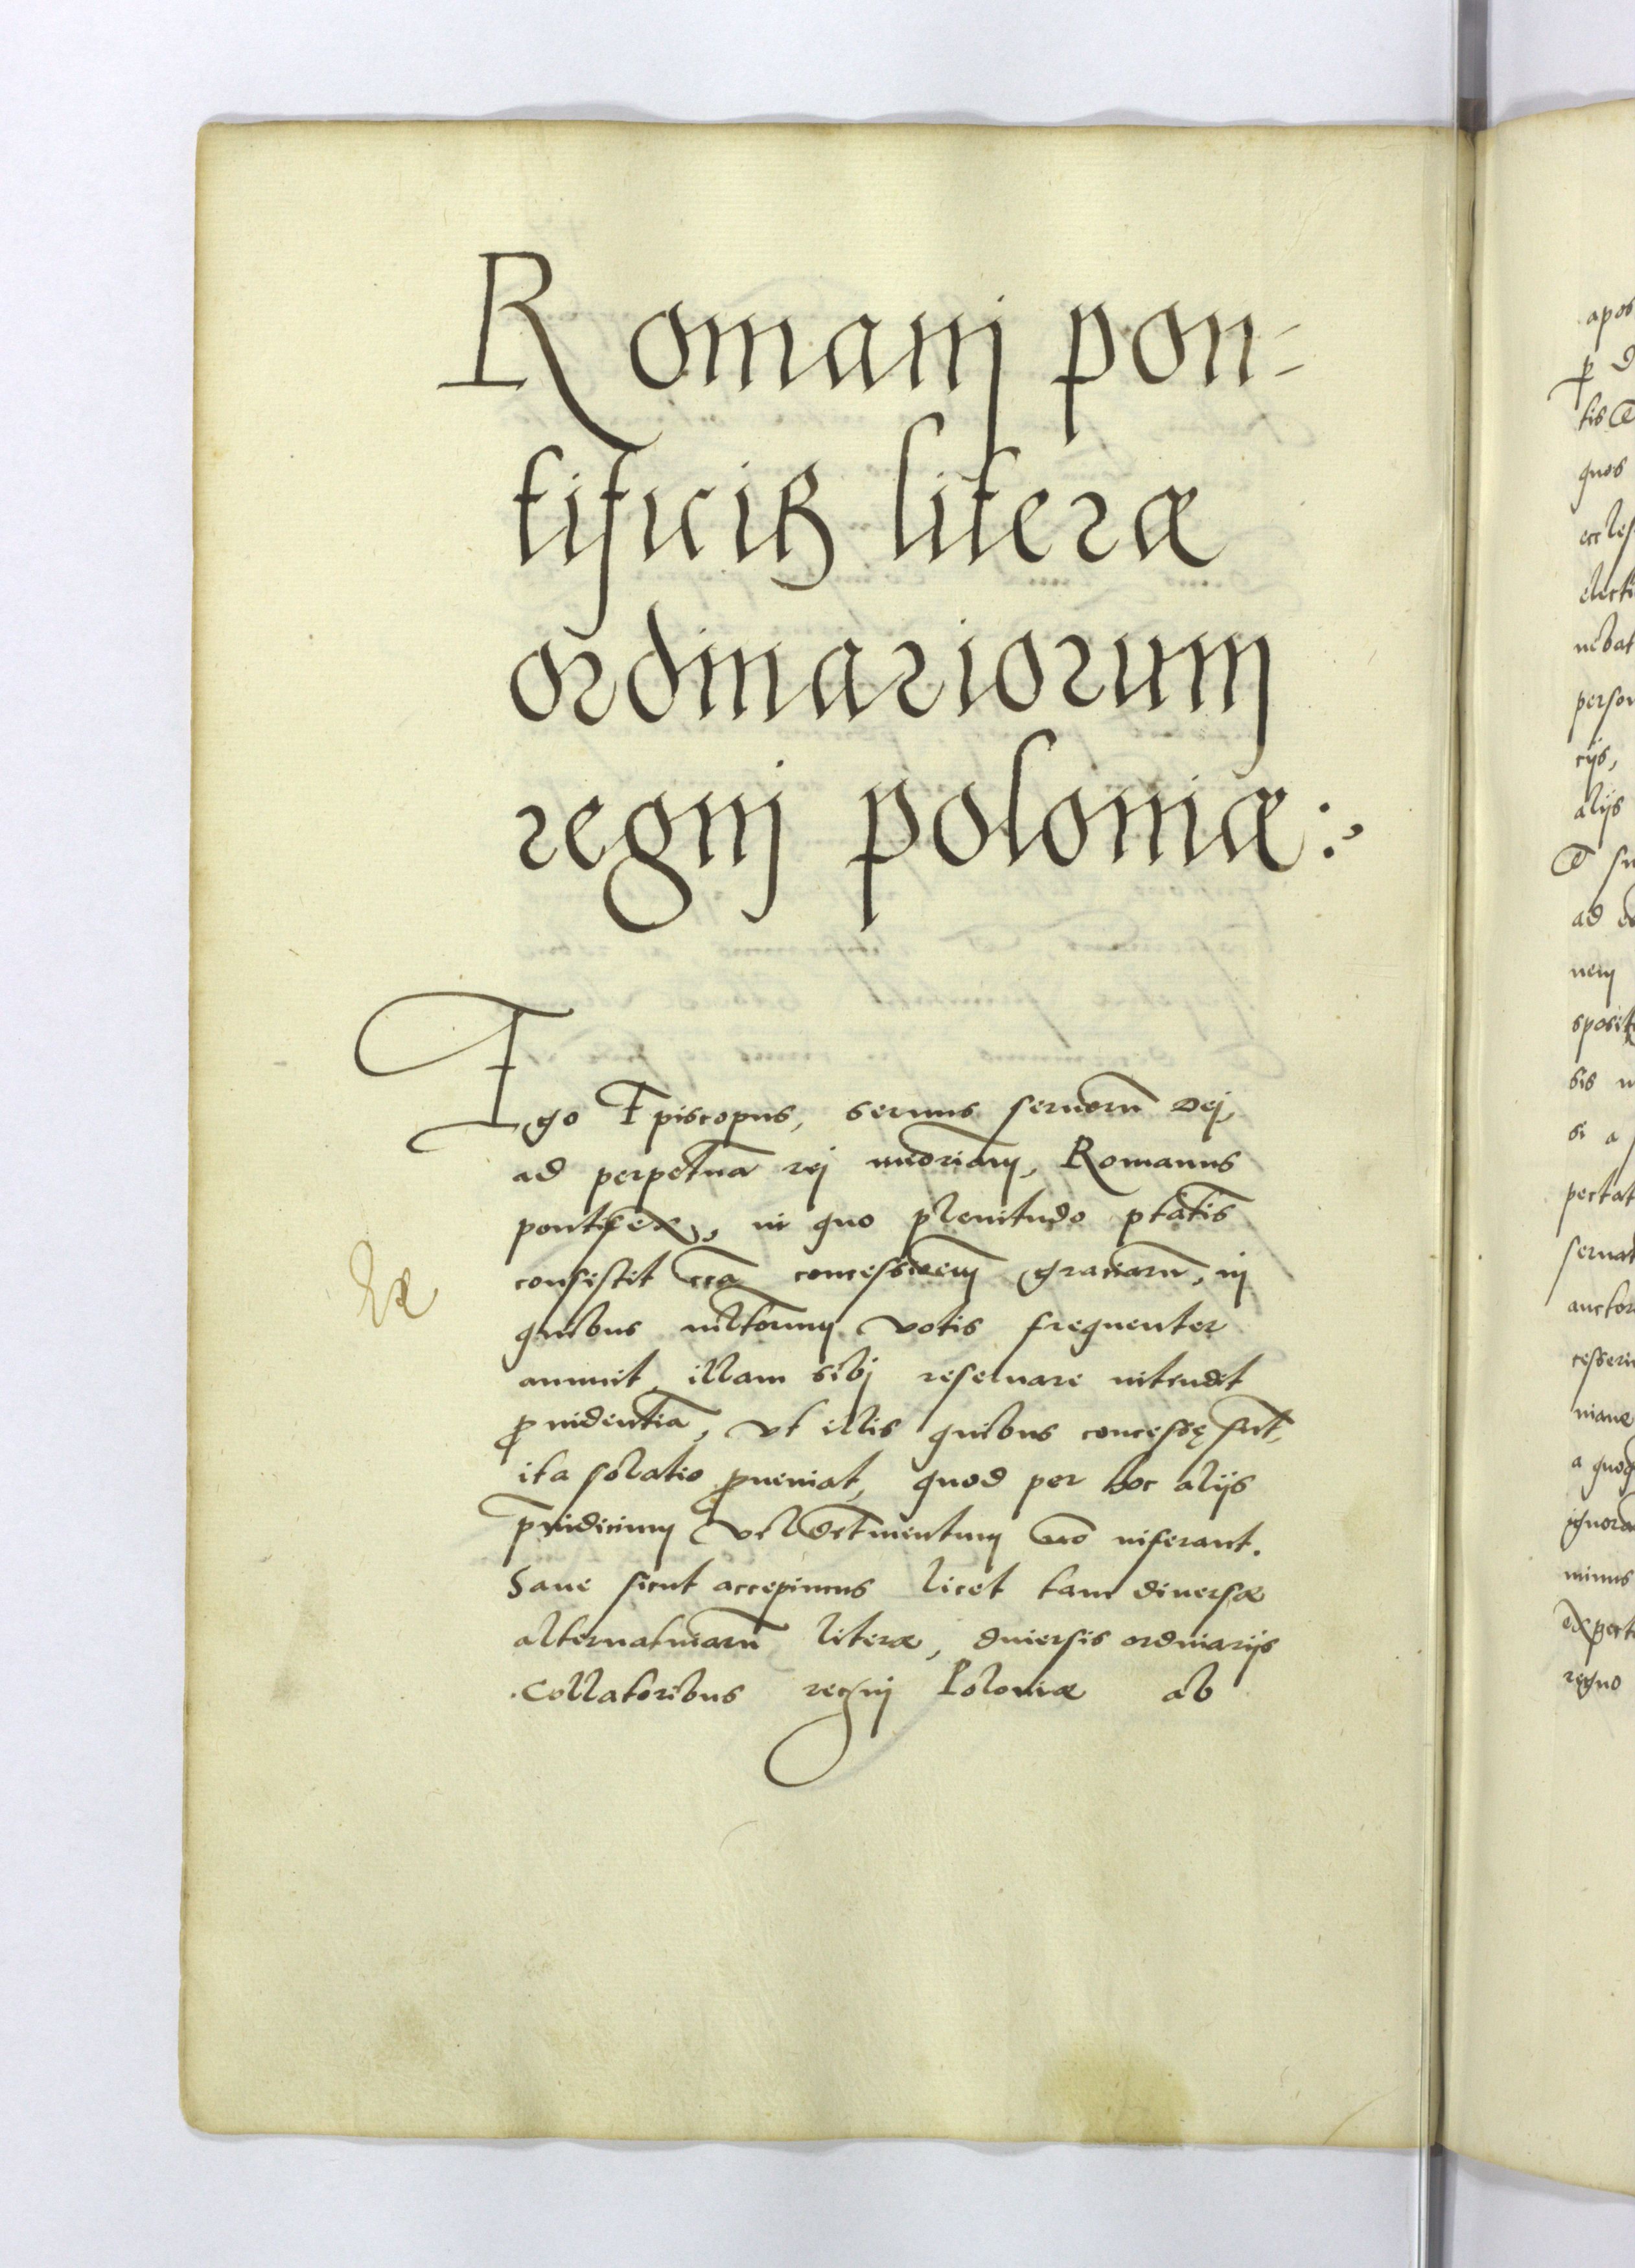 Romanj pon=
tificis literæ
ordinariorum
regnj poloniæ:
Ego Episcopus, seruus seruorū Dej,
ad perpetuā rej mēoriam, Romanus
pontifex, in quo plenitudo ptātis
consistit cca concessionem graciarū, in
quibus mltorum votis frequenter
annuit, illam sibj reseruare intendit
prouidentiā, vt illis quibus concessę sūt,
ita solatio proueniat, quod per hoc alijs
p̄iudicium vel detrimentum nō inferant.
Sane sicut accepimus licet tam diuersæ
alternatiuarū literæ, diuersis ordinarijs
collatoribus regnj Poloniæ ab
apos
p d
tis
quos
eccles
electi
nebat
person
cijs,
alijs
su
ad
nem
sposit
sis
si a
pectat
seruat
auctor
cesseri
a quoq
ignora
minus
expect
regno